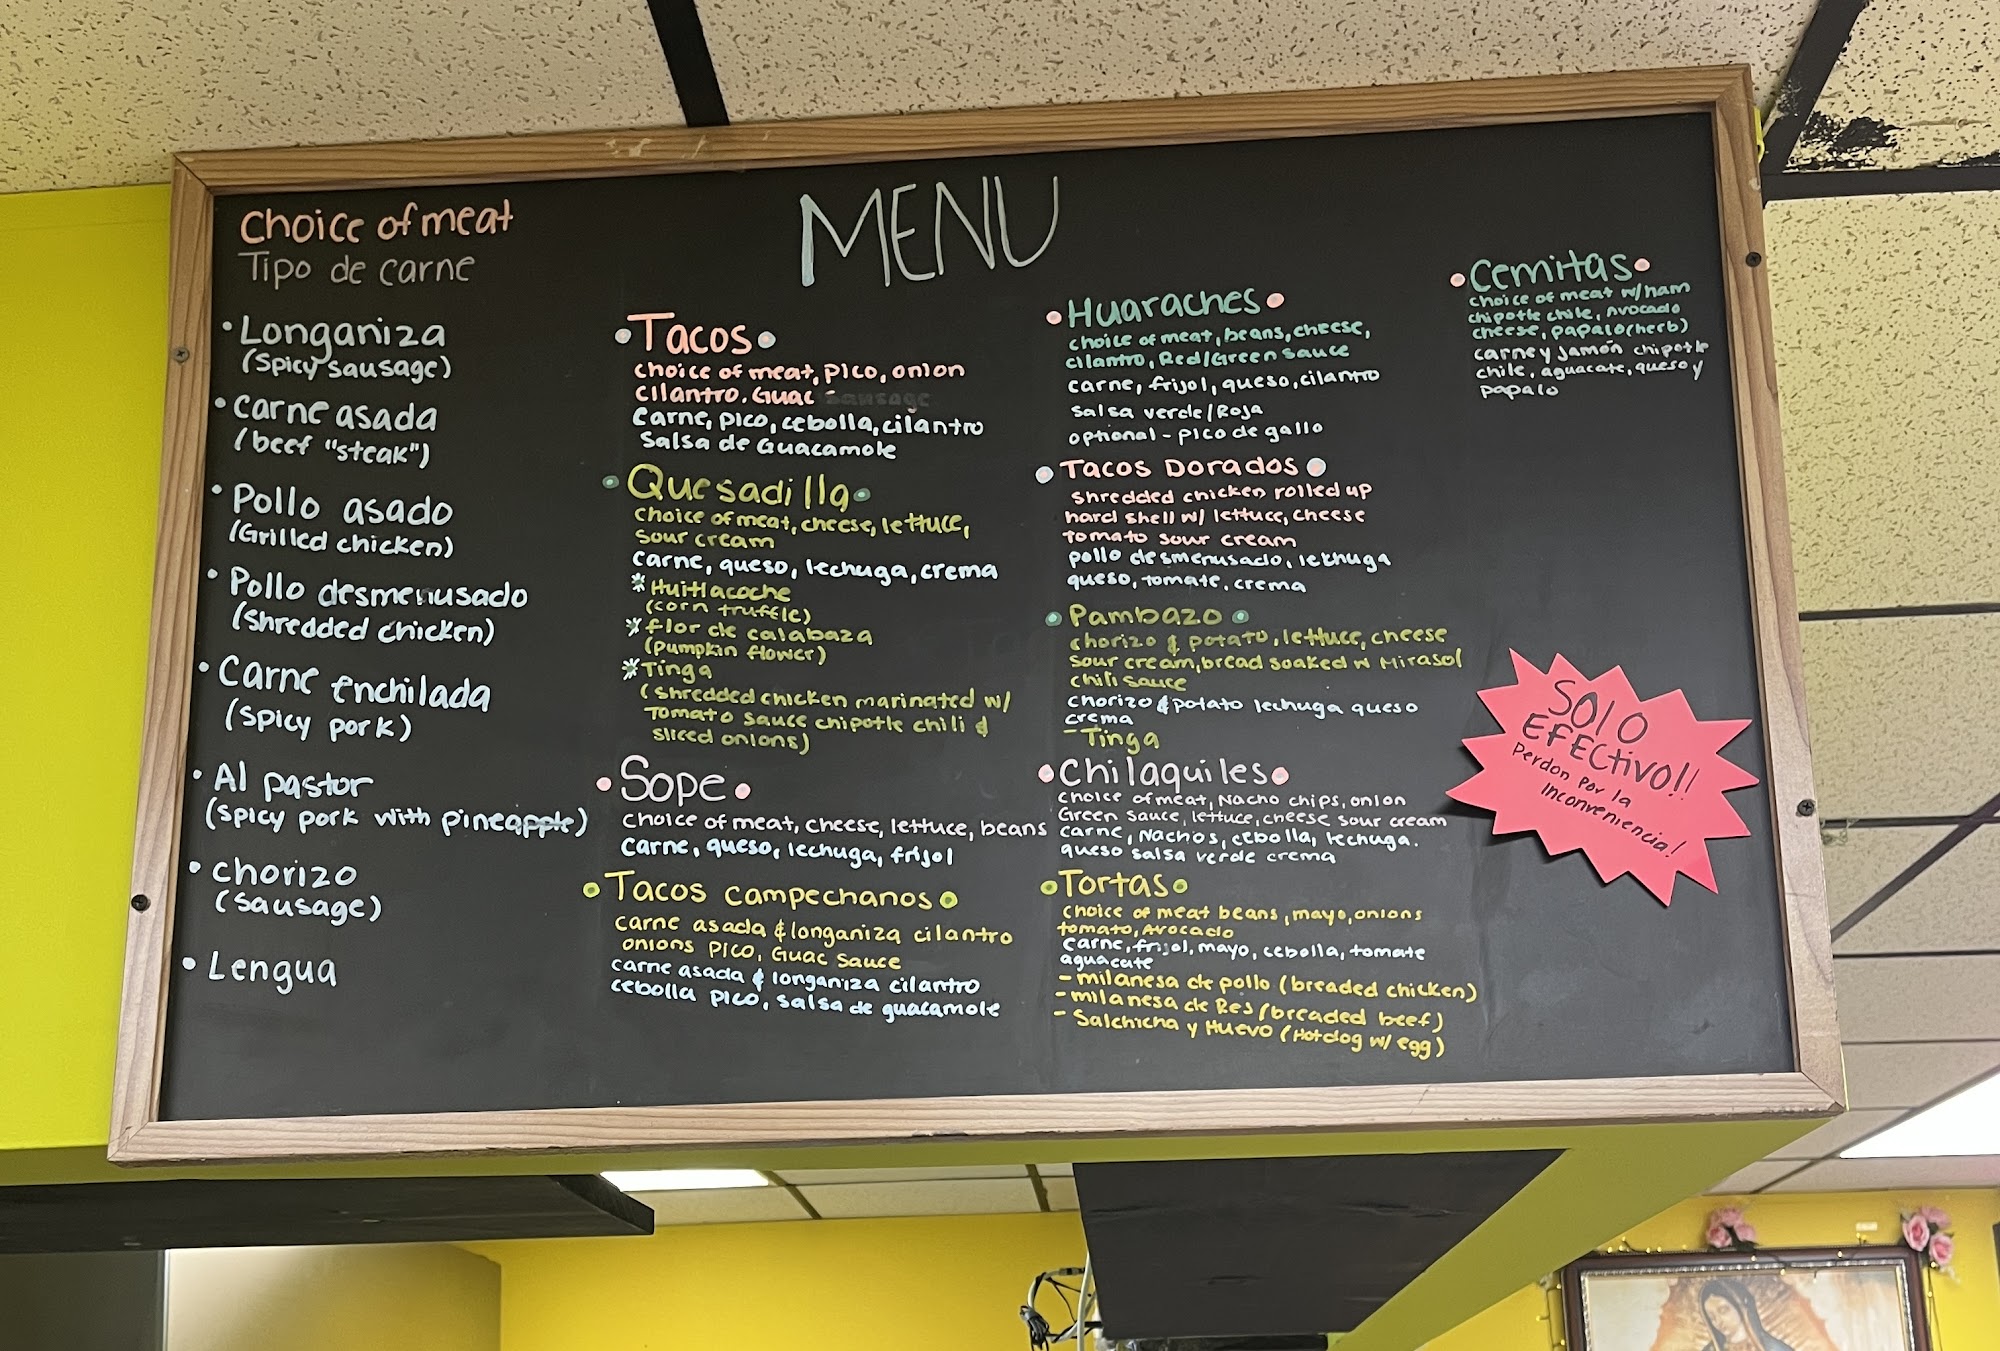 MENU
Choice of meat
Tipo de carne
• Longaniza
(Spicy sausage)
• Carne asada
(beef "steak")
• Pollo asado
(Grilled chicken)
• Pollo desmenusado
(Shredded chicken)
• Carne enchilada
(spicy pork)
• Al pastor
(spicy pork with pineapple)
• chorizo
(sausage)
• Lengua
• Tacos •
choice of meat, pico, onion
cilantro. Guac - sausage
Carne, pico, cebolla, cilantro
Salsa de Guacamole
• Quesadilla •
choice of meat, cheese, lettuce,
sour cream
carne, queso, lechuga, crema
* Huitlacoche
(corn truffle)
* flor de calabaza
(pumpkin flower)
* Tinga
(shredded chicken marinated w/
Tomato sauce chipotle chili &
sliced onions)
• Sope •
choice of meat, cheese, lettuce, beans
Carne, queso, lechuga, frijol
• Tacos campechanos •
carne asada & longaniza cilantro
onions pico, Guac sauce
carne asada & longaniza cilantro
cebolla pico, salsa de guacamole
• Huaraches •
choice of meat, beans, cheese,
cilantro, Red/Green sauce
carne, frijol, queso, cilantro
salsa verde/Roja
optional - pico de gallo
• Tacos Dorados •
shredded chicken rolled up
hard shell w/ lettuce, cheese
tomato sour cream
pollo desmenusado, lechuga
queso, tomate, crema
• Pambazo •
chorizo & potato, lettuce, cheese
sour cream, bread soaked w Mirasol
chili sauce
chorizo & potato lechuga queso
crema
- Tinga
• Chilaquiles •
choice of meat, Nacho chips, onion
Green sauce, lettuce, cheese sour cream
carne, Nachos, cebolla, lechuga.
queso salsa verde crema
• Tortas •
choice of meat beans, mayo, onions
tomato, Avocado
carne, frijol, mayo, cebolla, tomate
aguacate
- milanesa de pollo (breaded chicken)
- milanesa de Res (breaded beef)
- Salchicha y Huevo (Hotdog w/ egg)
• Cemitas •
choice of meat w/ham
chipotle chile, Avocado
cheese, papalo(herb)
carne y Jamón chipotle
chile, aguacate, queso y
papalo
SOLO
EFECTIVO!!
Perdon Por la
Inconveniencia!